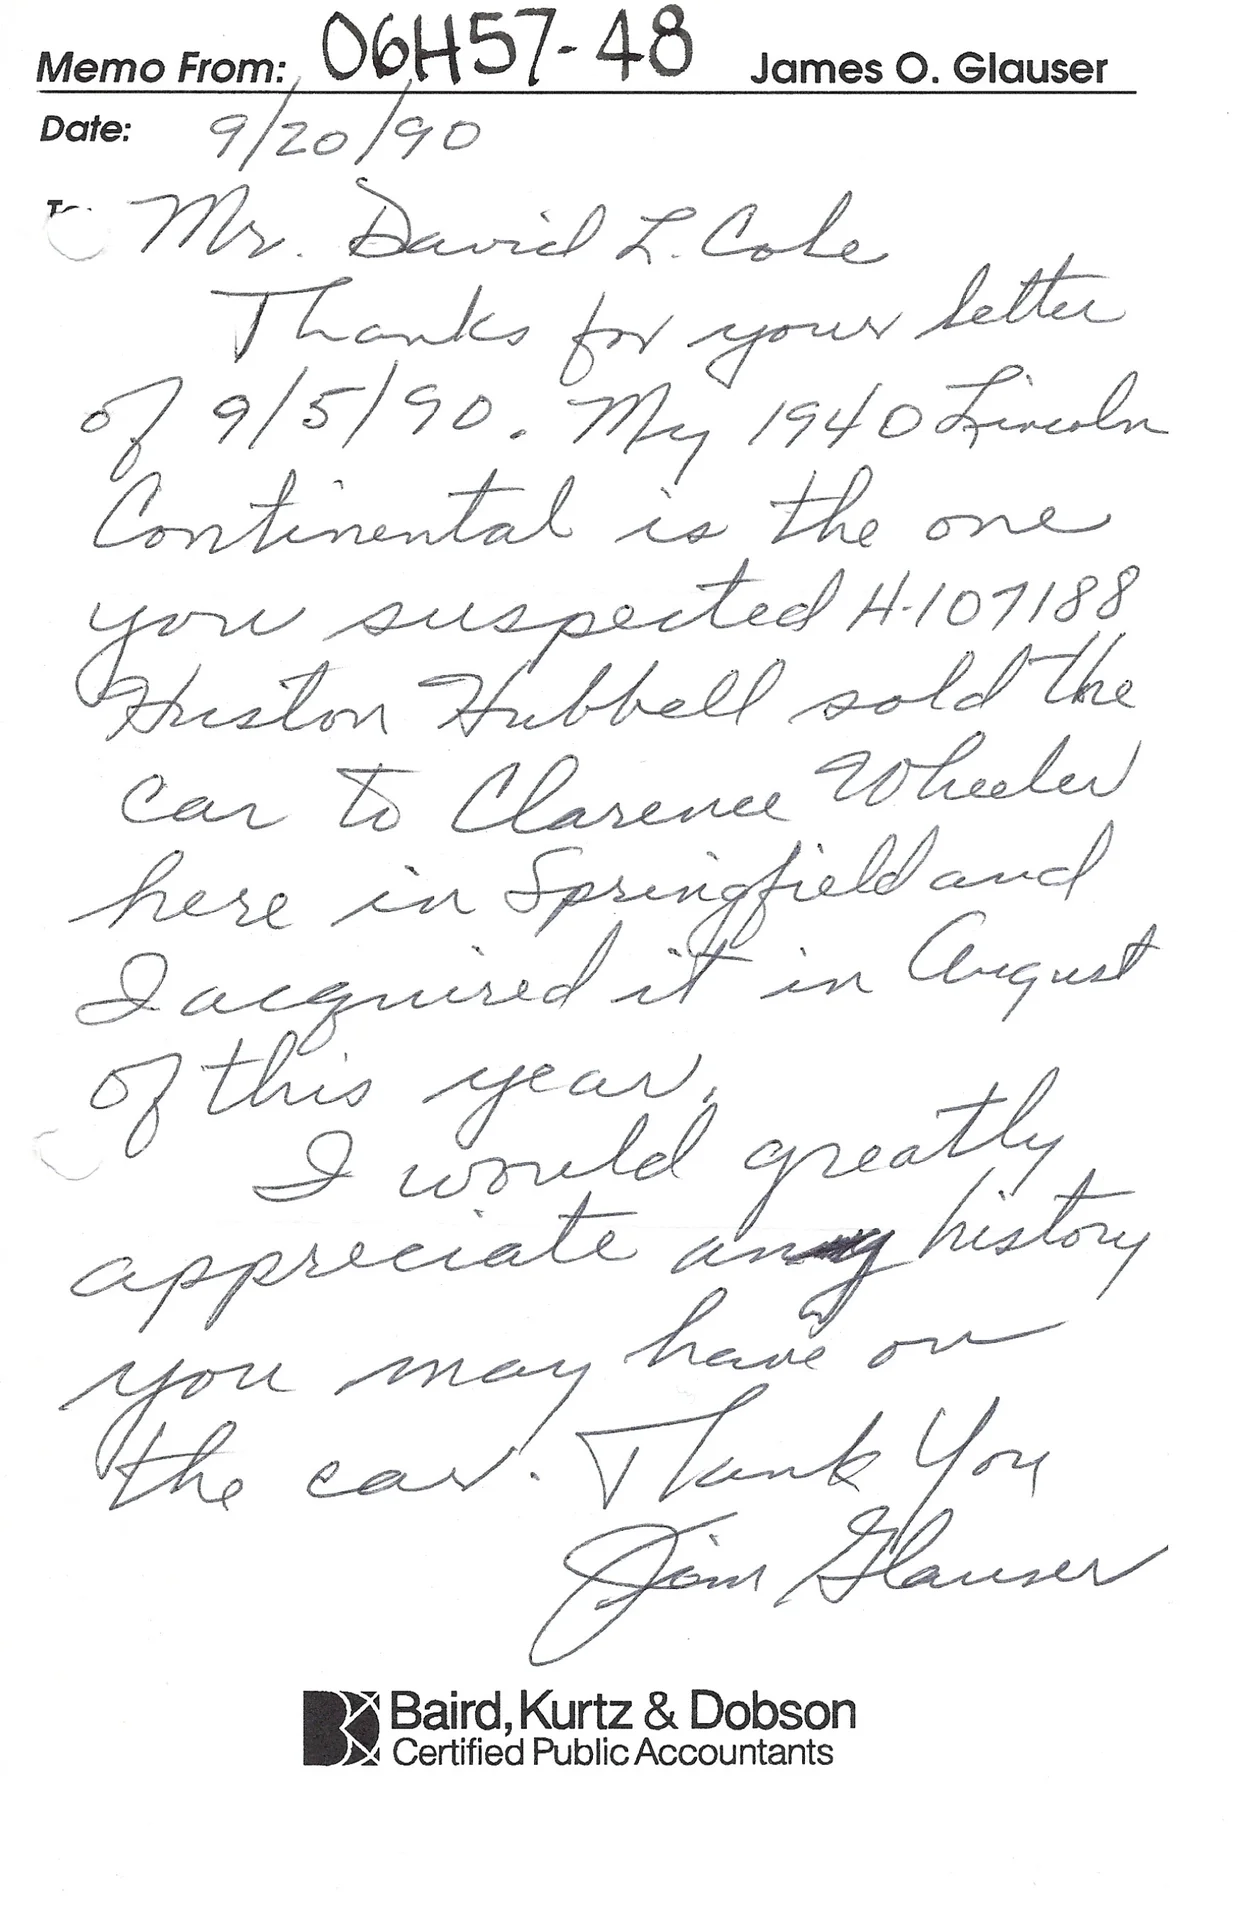 Memo From: 06H57-48 James O. Glauser
Date: 9/20/90
To: Mr. David L. Cole
Thanks for your letter
of 9/5/90. My 1940 Lincoln
Continental is the one
you suspected H-107188
Huston Hubbell sold the
car to Clarence Wheeler
here in Springfield and
I acquired it in August
of this year.
I would greatly
appreciate any history
you may have on
the car. Thank You
Jim Glauser
BKD Baird, Kurtz & Dobson
Certified Public Accountants